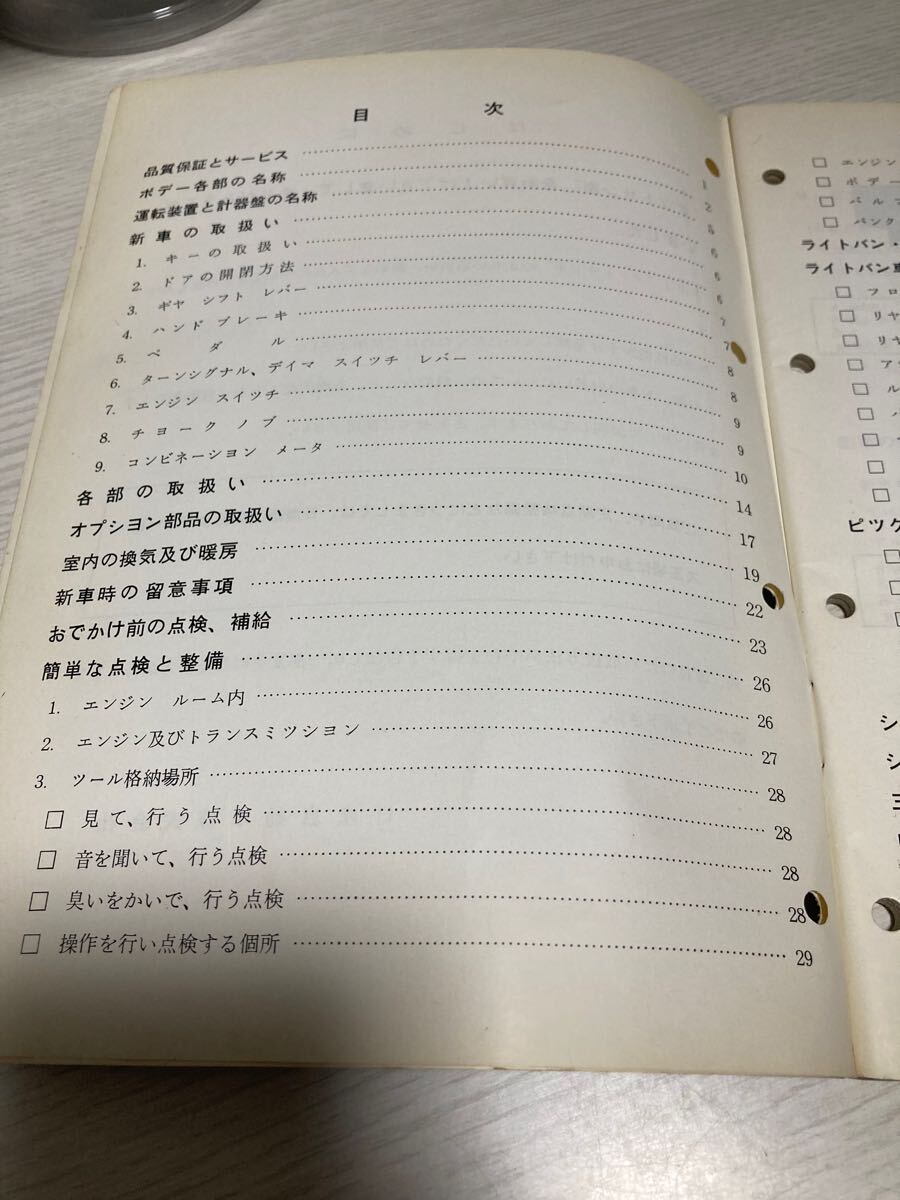 目　次
品質保証とサービス …… 1
ボデー各部の名称 …… 2
運転装置と計器盤の名称 …… 5
新車の取扱い …… 6
1. キーの取扱い …… 6
2. ドアの開閉方法 …… 6
3. ギヤ シフト レバー …… 7
4. ハンド ブレーキ …… 7
5. ペダル …… 8
6. ターンシグナル、デイマ スイツチ レバー …… 8
7. エンジン スイツチ …… 9
8. チヨーク ノブ …… 9
9. コンビネーション メータ …… 10
各部の取扱い …… 14
オプシヨン部品の取扱い …… 17
室内の換気及び暖房 …… 19
新車時の留意事項 …… 22
おでかけ前の点検、補給 …… 23
簡単な点検と整備 …… 26
1. エンジン ルーム内 …… 26
2. エンジン及びトランスミツシヨン …… 27
3. ツール格納場所 …… 28
□ 見て、行う点検 …… 28
□ 音を聞いて、行う点検 …… 28
□ 臭いをかいで、行う点検 …… 28
□ 操作を行い点検する個所 …… 29
□ エンジン
□ ボデー
□ バルブ
□ パンク
ライトバン・
ライトバン車
□ フロ
□ リヤ
□ リヤ
□ ア
□ ル
ピツク
シ
シ
三